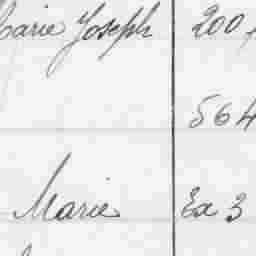 Marie Joseph 200
564
Marie Ex 3